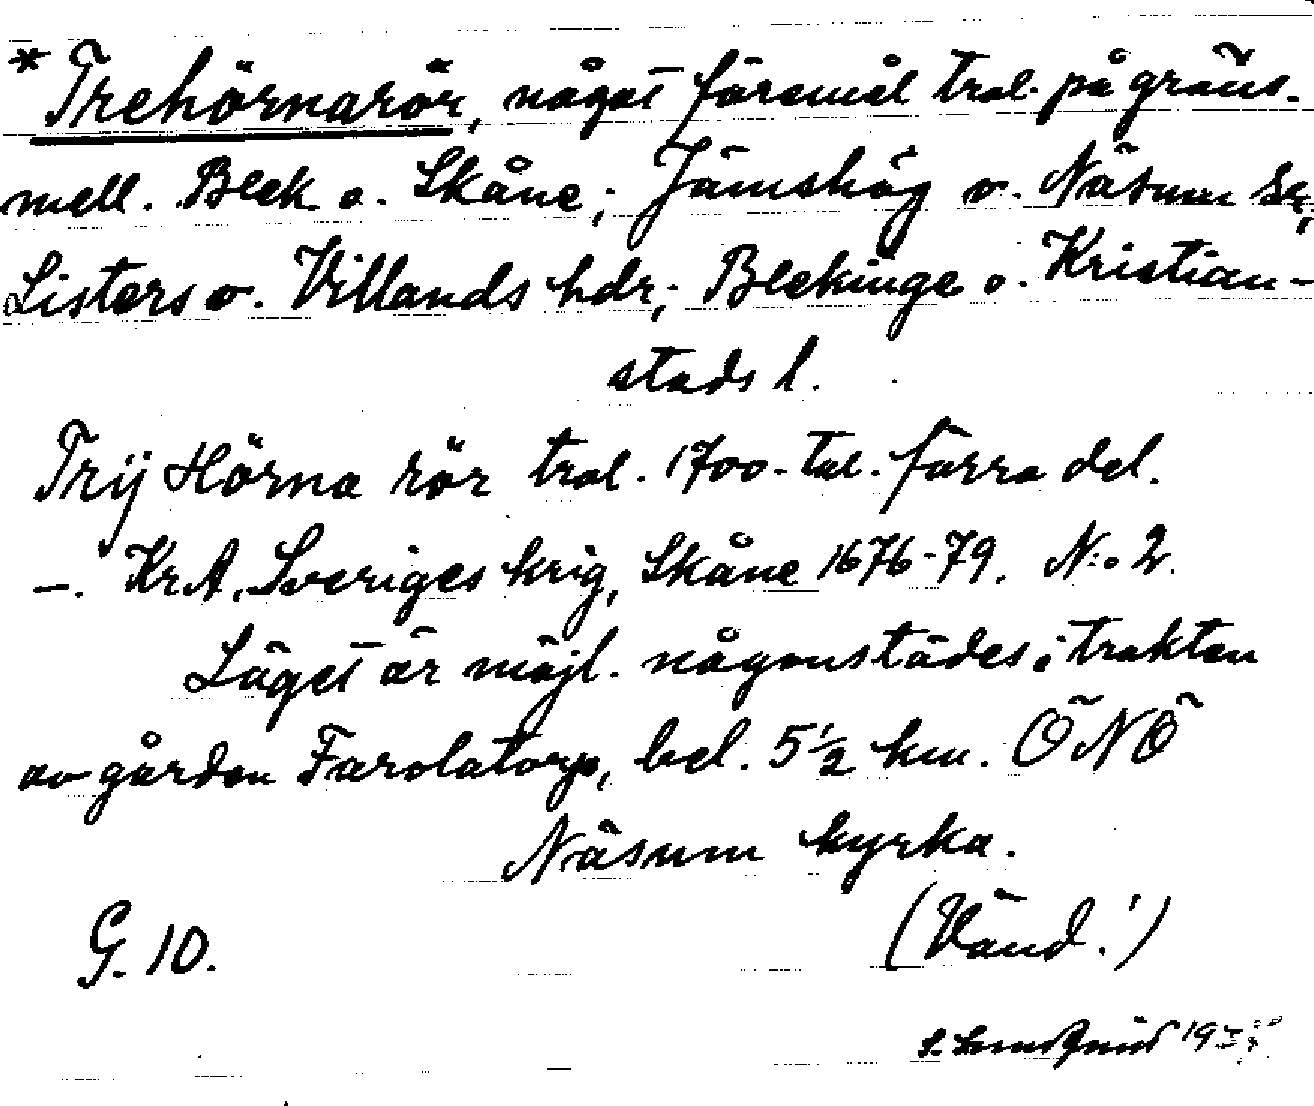 * Trehörnarör, något föremål trol. på gräns.
mell. Blek o. Skåne; Jämshög o. Näsum sr,
Listers o. Villands hdr; Blekinge o. Kristian-
stads l.
Trij Hörna rör trol. 1700-tal. förra del.
—. KrA. Sveriges krig, Skåne 1676-79. N:o 2.
Läget är möjl. någonstädes i trakten
av gården Farolatorp, bel. 5 1/2 km. ÖNÖ
Näsum kyrka.
G. 10.
(Vänd!)